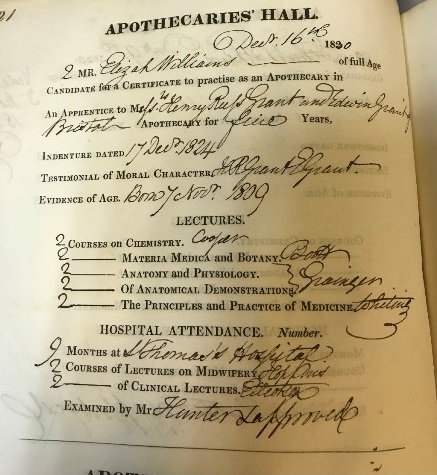 21
APOTHECARIES' HALL.
Decr. 16th 1830
2 MR. Elizah Williams of full Age
CANDIDATE for a CERTIFICATE to practise as an APOTHECARY in
An APPRENTICE to Messrs. Henry Grant and Edwin Grant of
Bristol APOTHECARY for five YEARS,
INDENTURE DATED 17 Decr. 1824
TESTIMONIAL OF MORAL CHARACTER HR Grant E Grant.
EVIDENCE OF AGE. Born 7 Novr. 1809
LECTURES.
2 COURSES ON CHEMISTRY. Cooper
2 —— MATERIA MEDICA AND BOTANY. Bott
2 —— ANATOMY AND PHYSIOLOGY. } Grainger
2 —— OF ANATOMICAL DEMONSTRATIONS.
2 —— THE PRINCIPLES AND PRACTICE OF MEDICINE. Whiting
HOSPITAL ATTENDANCE. Number.
9 MONTHS AT St Thomas's Hospital
2 COURSES OF LECTURES ON MIDWIFERY. Hopkins
2 —— OF CLINICAL LECTURES. Elliotson
EXAMINED BY MR Hunter & approved